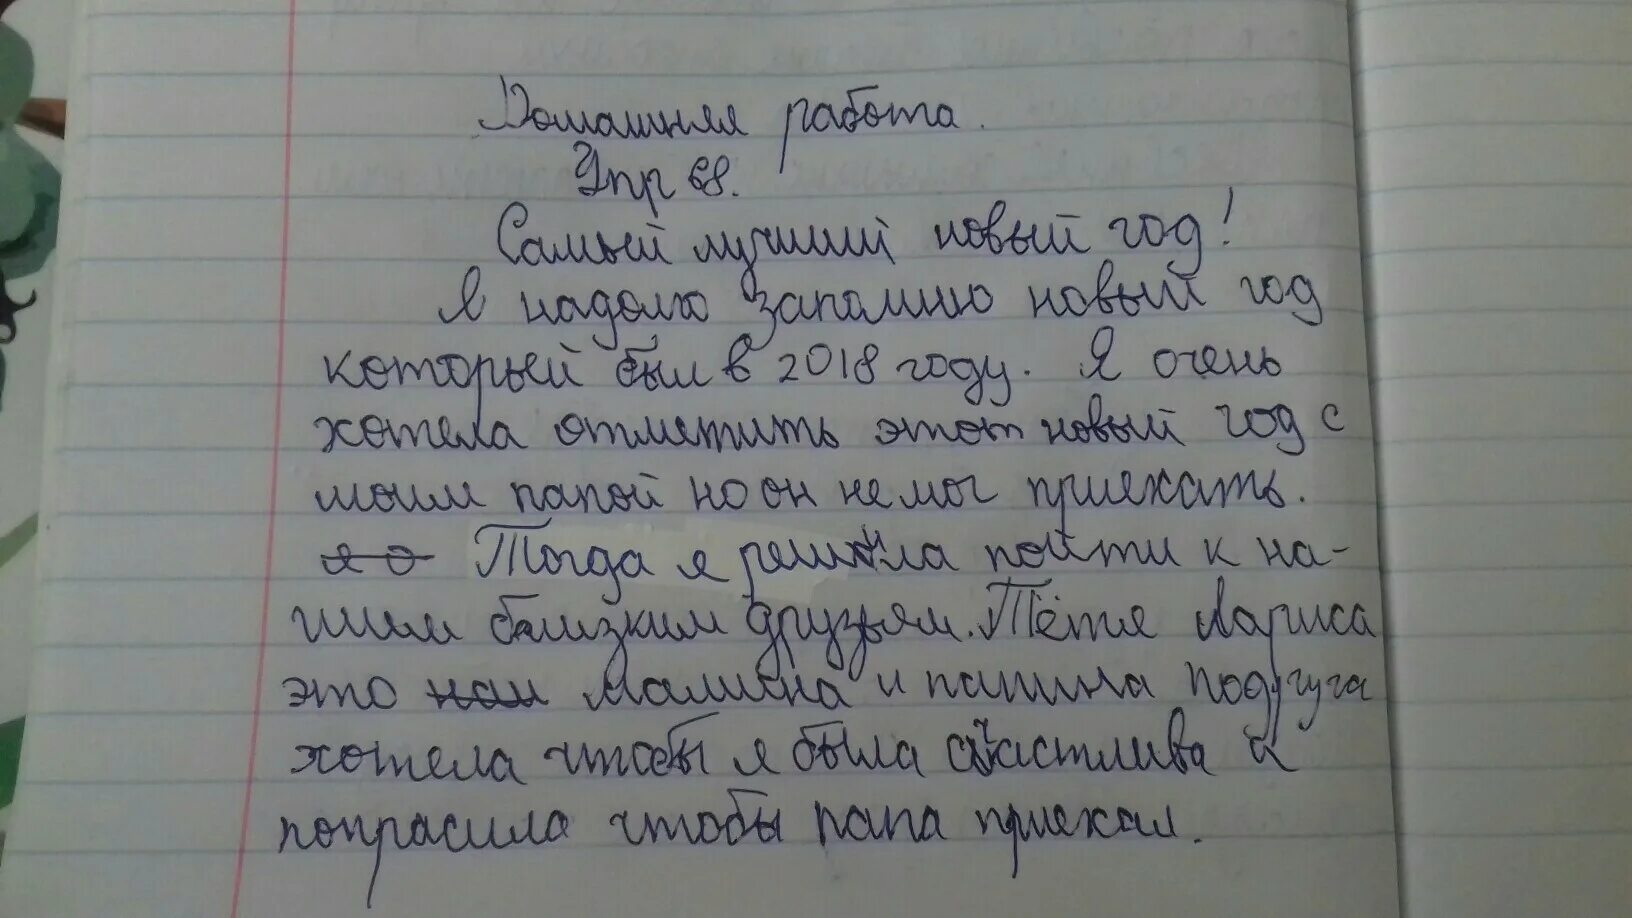 Домашняя работа.
Упр 68.
Самый лучший новый год!
Я надолго запомню новый год
который был в 2018 году. Я очень
хотела отметить этот новый год с
моим папой но он не мог приехать.
я о Тогда я решила пойти к на-
шим близким друзьям. Тётя Лариса
это нам мамина и папина подруга
хотела чтобы я была счастлива и
попрасила чтобы папа приехал.